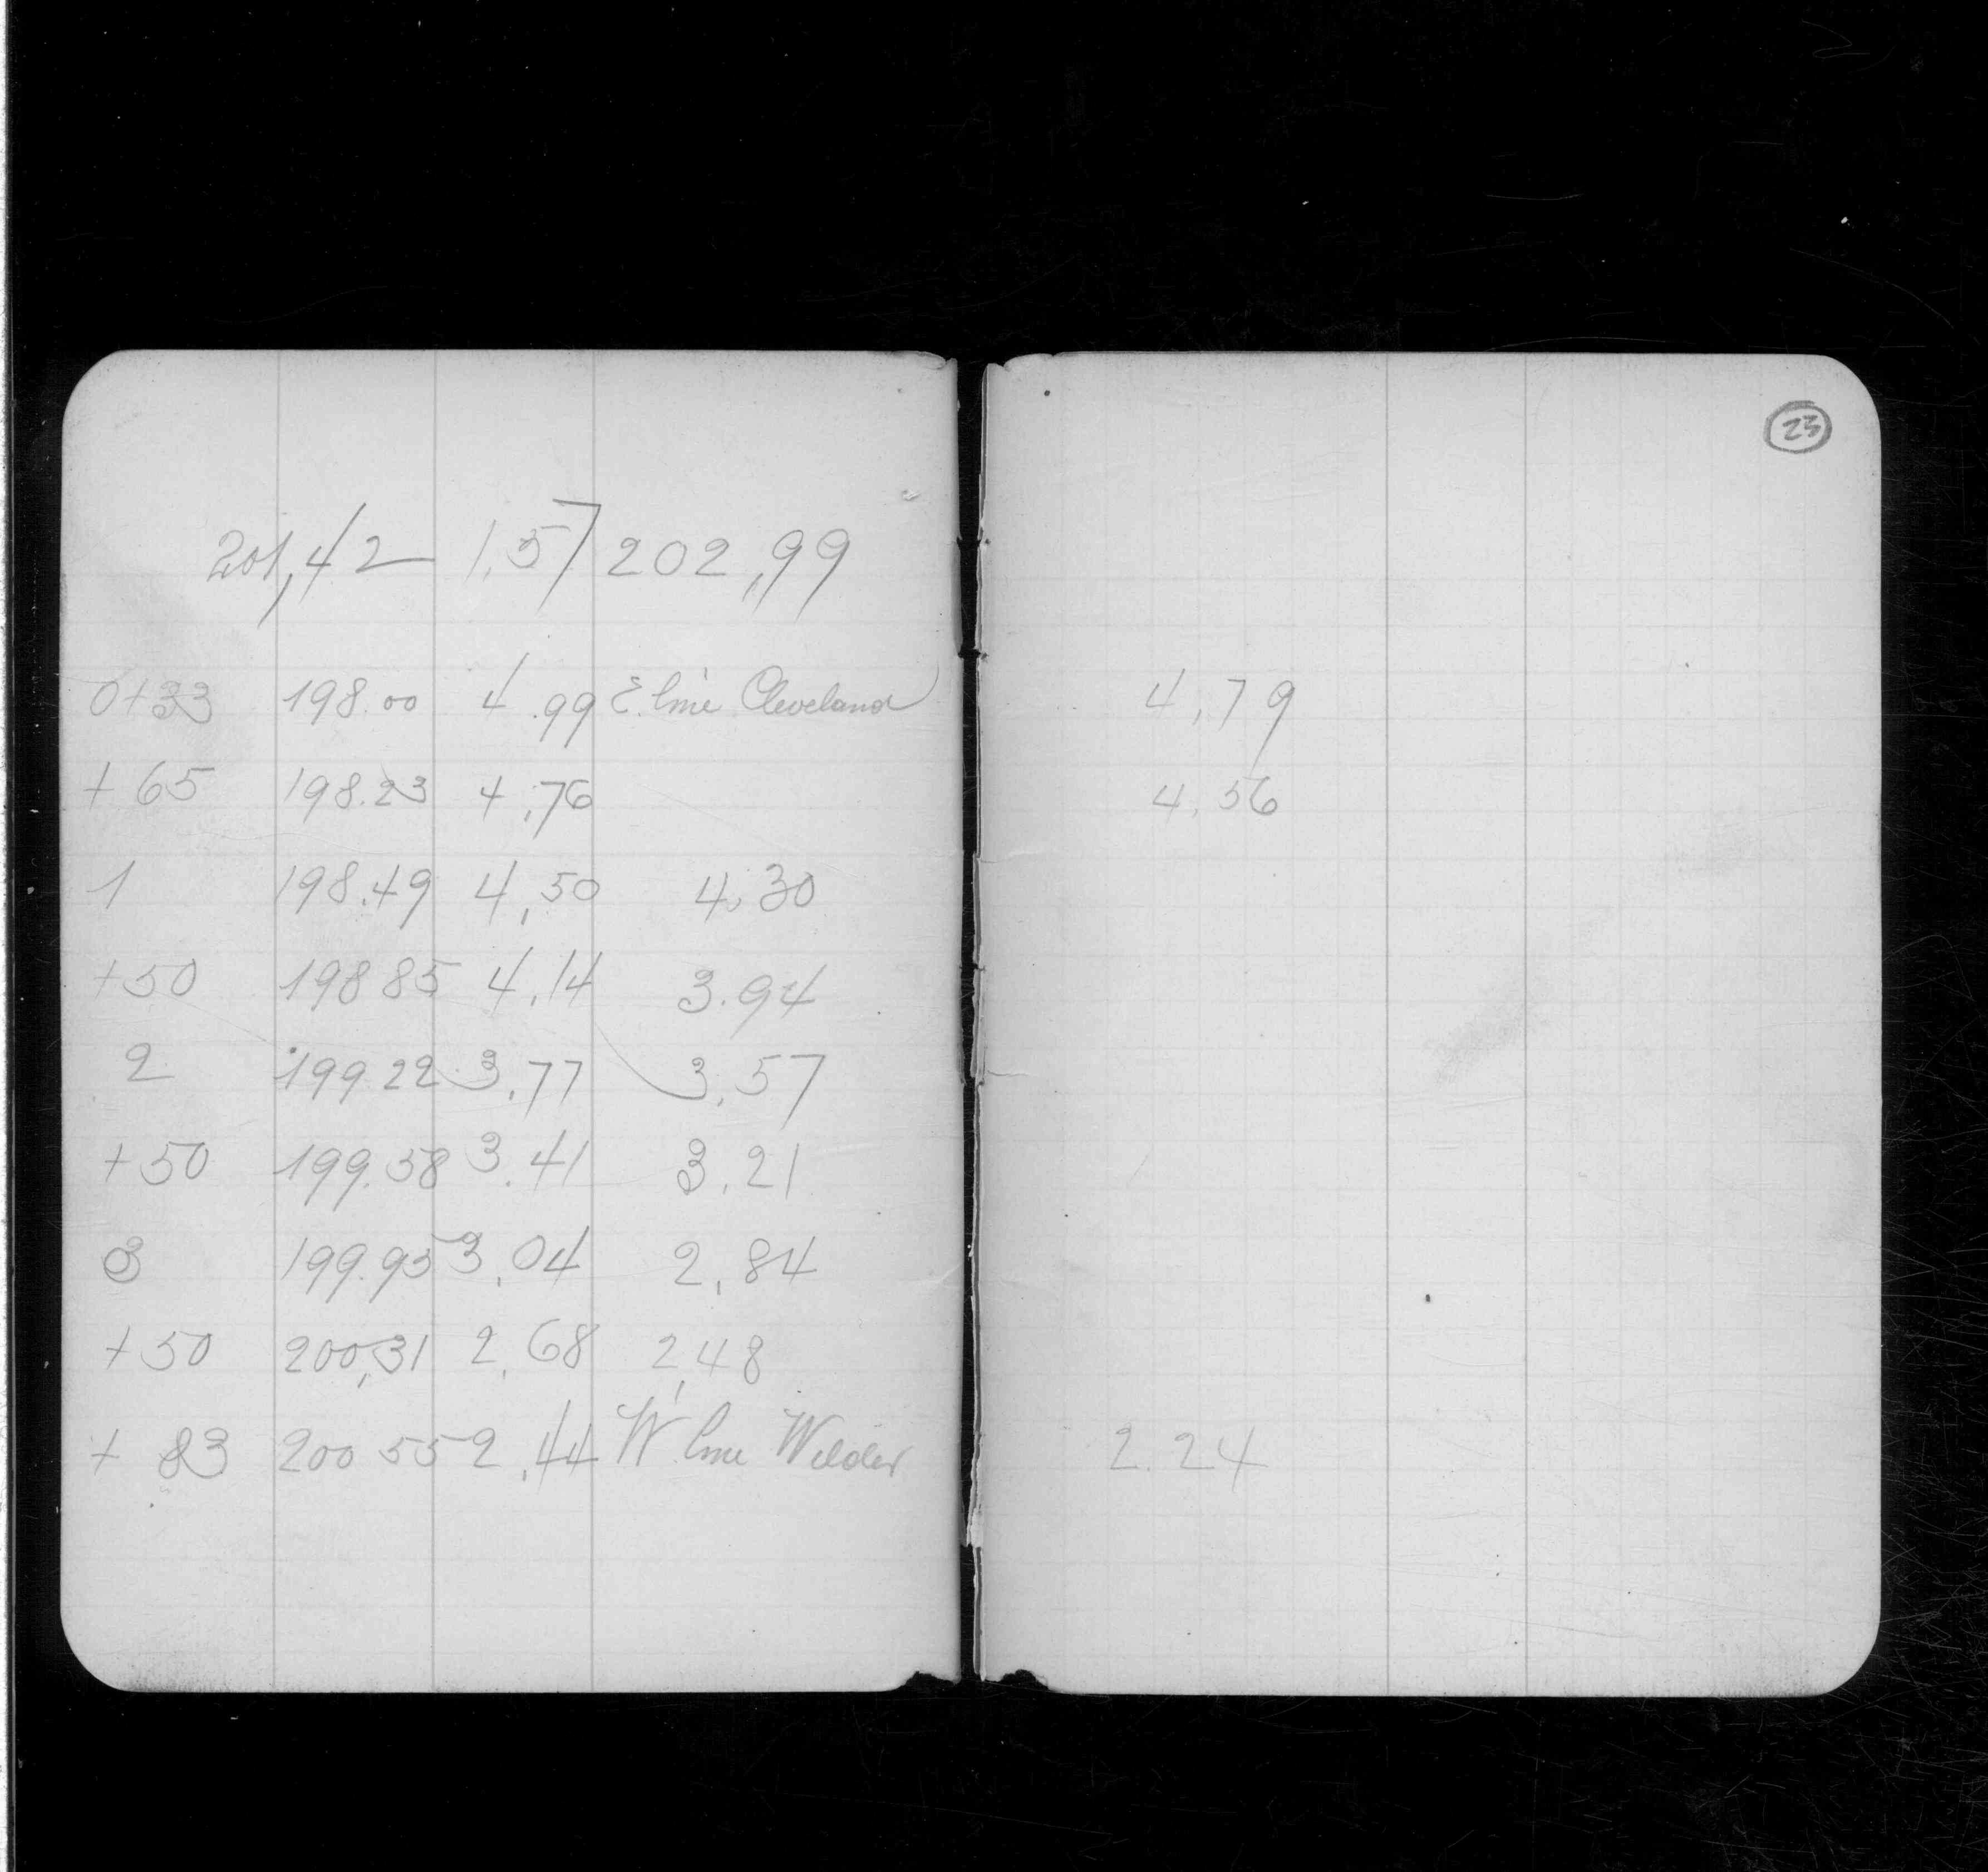 23
201,42 1.57 202,99
0+33 198.00 4.99 E. line Cleveland 4,79
+ 65 198.23 4,76 4.56
1 198.49 4,50 4.30
+50 198 85 4,14 3.94
2 199.22 3.77 3,57
+ 50 199.58 3.41 3,21
3 199.95 3,04 2,84
+ 50 200,31 2,68 2,48
+ 83 200 55 2,44 W. line Wilder 2.24